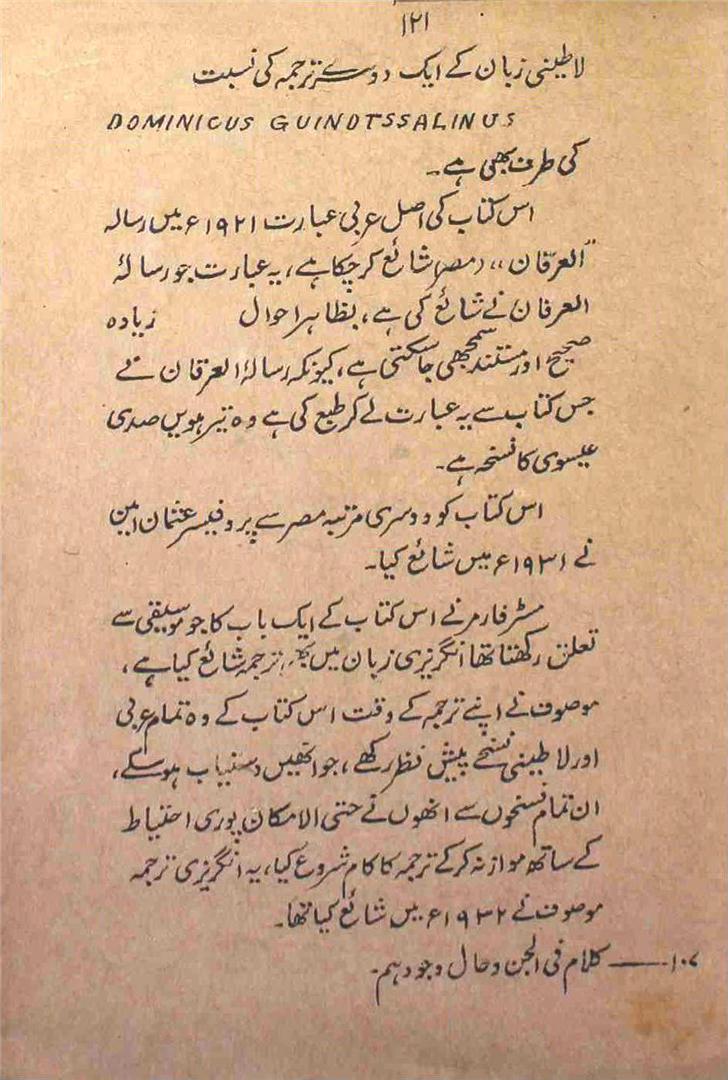 ۱۲۱
لاطینی زبان کے ایک دوسرے ترجمہ کی نسبت
DOMINICUS GUINDTSSALINUS
کی طرف بھی ہے۔
اس کتاب کی اصل عربی عبارت ۱۹۲۱ء میں رسالہ
"العرفان،، (مصر) شائع کرچکا ہے، یہ عبارت جو رسالۂ
العرفان نے شائع کی ہے، بظاہر احوال زیادہ
صحیح اور مستند سمجھی جاسکتی ہے، کیونکہ رسالۂ العرفان نے
جس کتاب سے یہ عبارت لے کر طبع کی ہے وہ تیرہویں صدی
عیسوی کا نسخہ ہے۔
اس کتاب کو دوسری مرتبہ مصر سے پروفیسر عثمان امین
نے ۱۹۳۱ء میں شائع کیا۔
مسٹر فارمر نے اس کتاب کے ایک باب کا جو موسیقی سے
تعلق رکھتا تھا انگریزی زبان میں بھی ترجمہ شائع کیا ہے،
موصوف نے اپنے ترجمہ کے وقت اس کتاب کے وہ تمام عربی
اور لاطینی نسخے پیش نظر رکھے، جو انھیں دستیاب ہوسکے،
ان تمام نسخوں سے انھوں نے حتی الامکان پوری احتیاط
کے ساتھ موازنہ کرکے ترجمہ کا کام شروع کیا، یہ انگریزی ترجمہ
موصوف نے ۱۹۳۲ء میں شائع کیا تھا۔
۱۰۷ـــــ کلام فی الجن وحال وجودہم۔